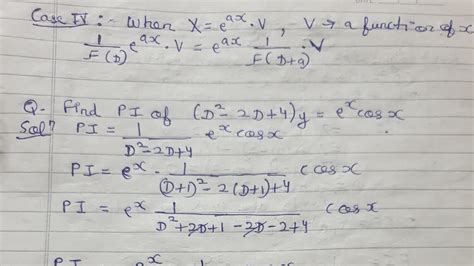 Case IV :- When X = e^{ax}·V , V → a function of x
1/F(D) e^{ax}·V = e^{ax} 1/F(D+a)·V
Q. Find PI of (D²-2D+4)y = e^x cosx
Sol^n PI = 1/(D²-2D+4) e^x cosx
PI = e^x · 1/((D+1)²-2(D+1)+4) cosx
PI = e^x 1/(D²+2D+1-2D-2+4) cosx
PI = e^x 1